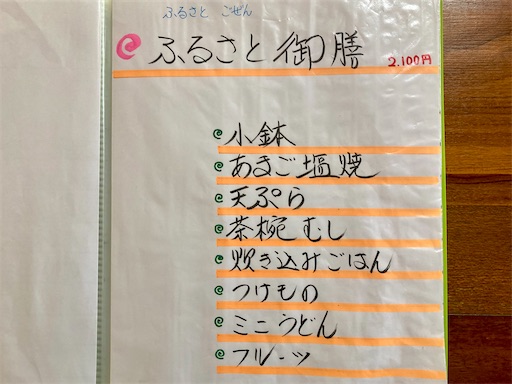 ふるさと ごぜん
ふるさと御膳 2,100円
小鉢
あまご塩焼
天ぷら
茶椀むし
炊き込みごはん
つけもの
ミニうどん
フルーツ